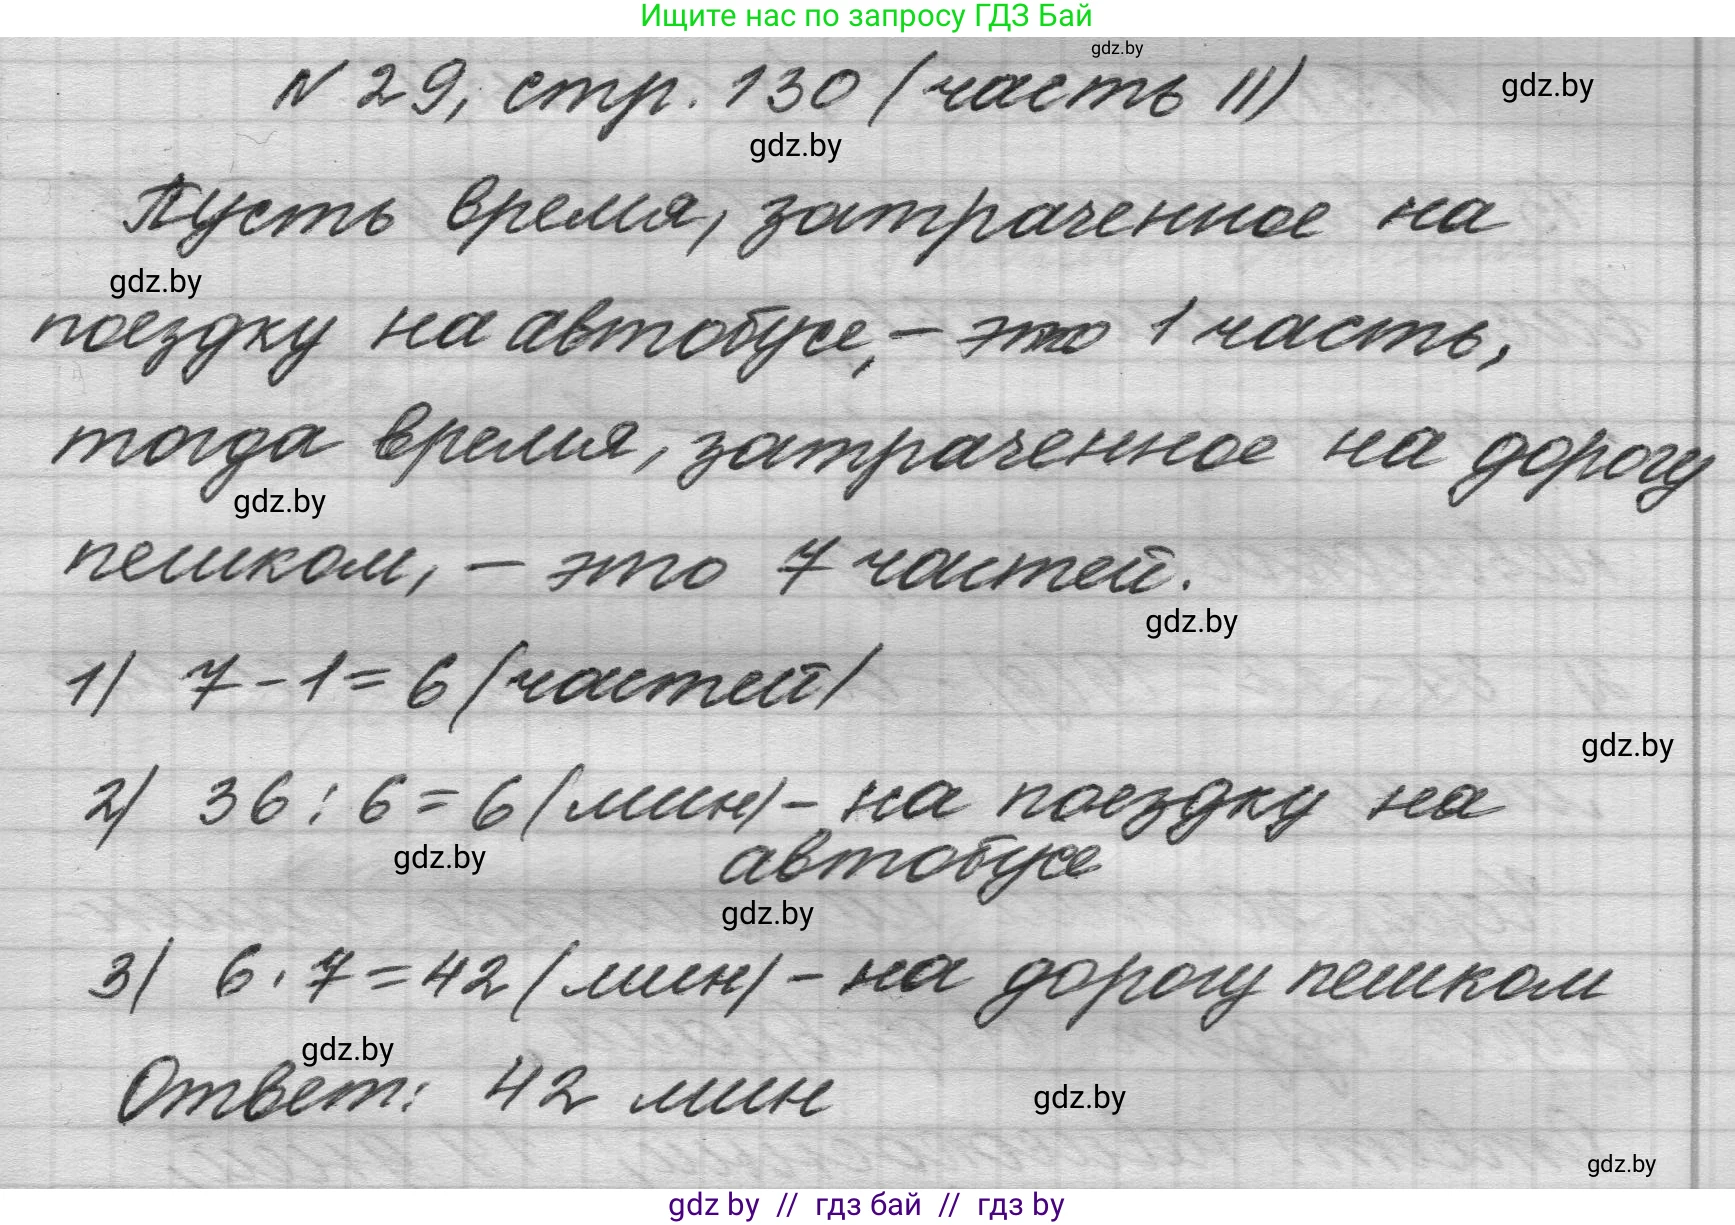 Ищите нас по запросу ГДЗ Бай
gdz.by
N 29, стр. 130 (часть II)
gdz.by
gdz.by
Пусть время, затраченное на
gdz.by
поездку на автобусе, – это 1 часть,
тогда время, затраченное на дорогу
gdz.by
пешком, – это 7 частей.
gdz.by
1) 7 - 1 = 6 (частей)
gdz.by
2) 36 : 6 = 6 (мин) – на поездку на
автобусе
gdz.by
gdz.by
3) 6 · 7 = 42 (мин) – на дорогу пешком
gdz.by
Ответ: 42 мин
gdz.by
gdz.by
gdz by // гдз бай // гдз by